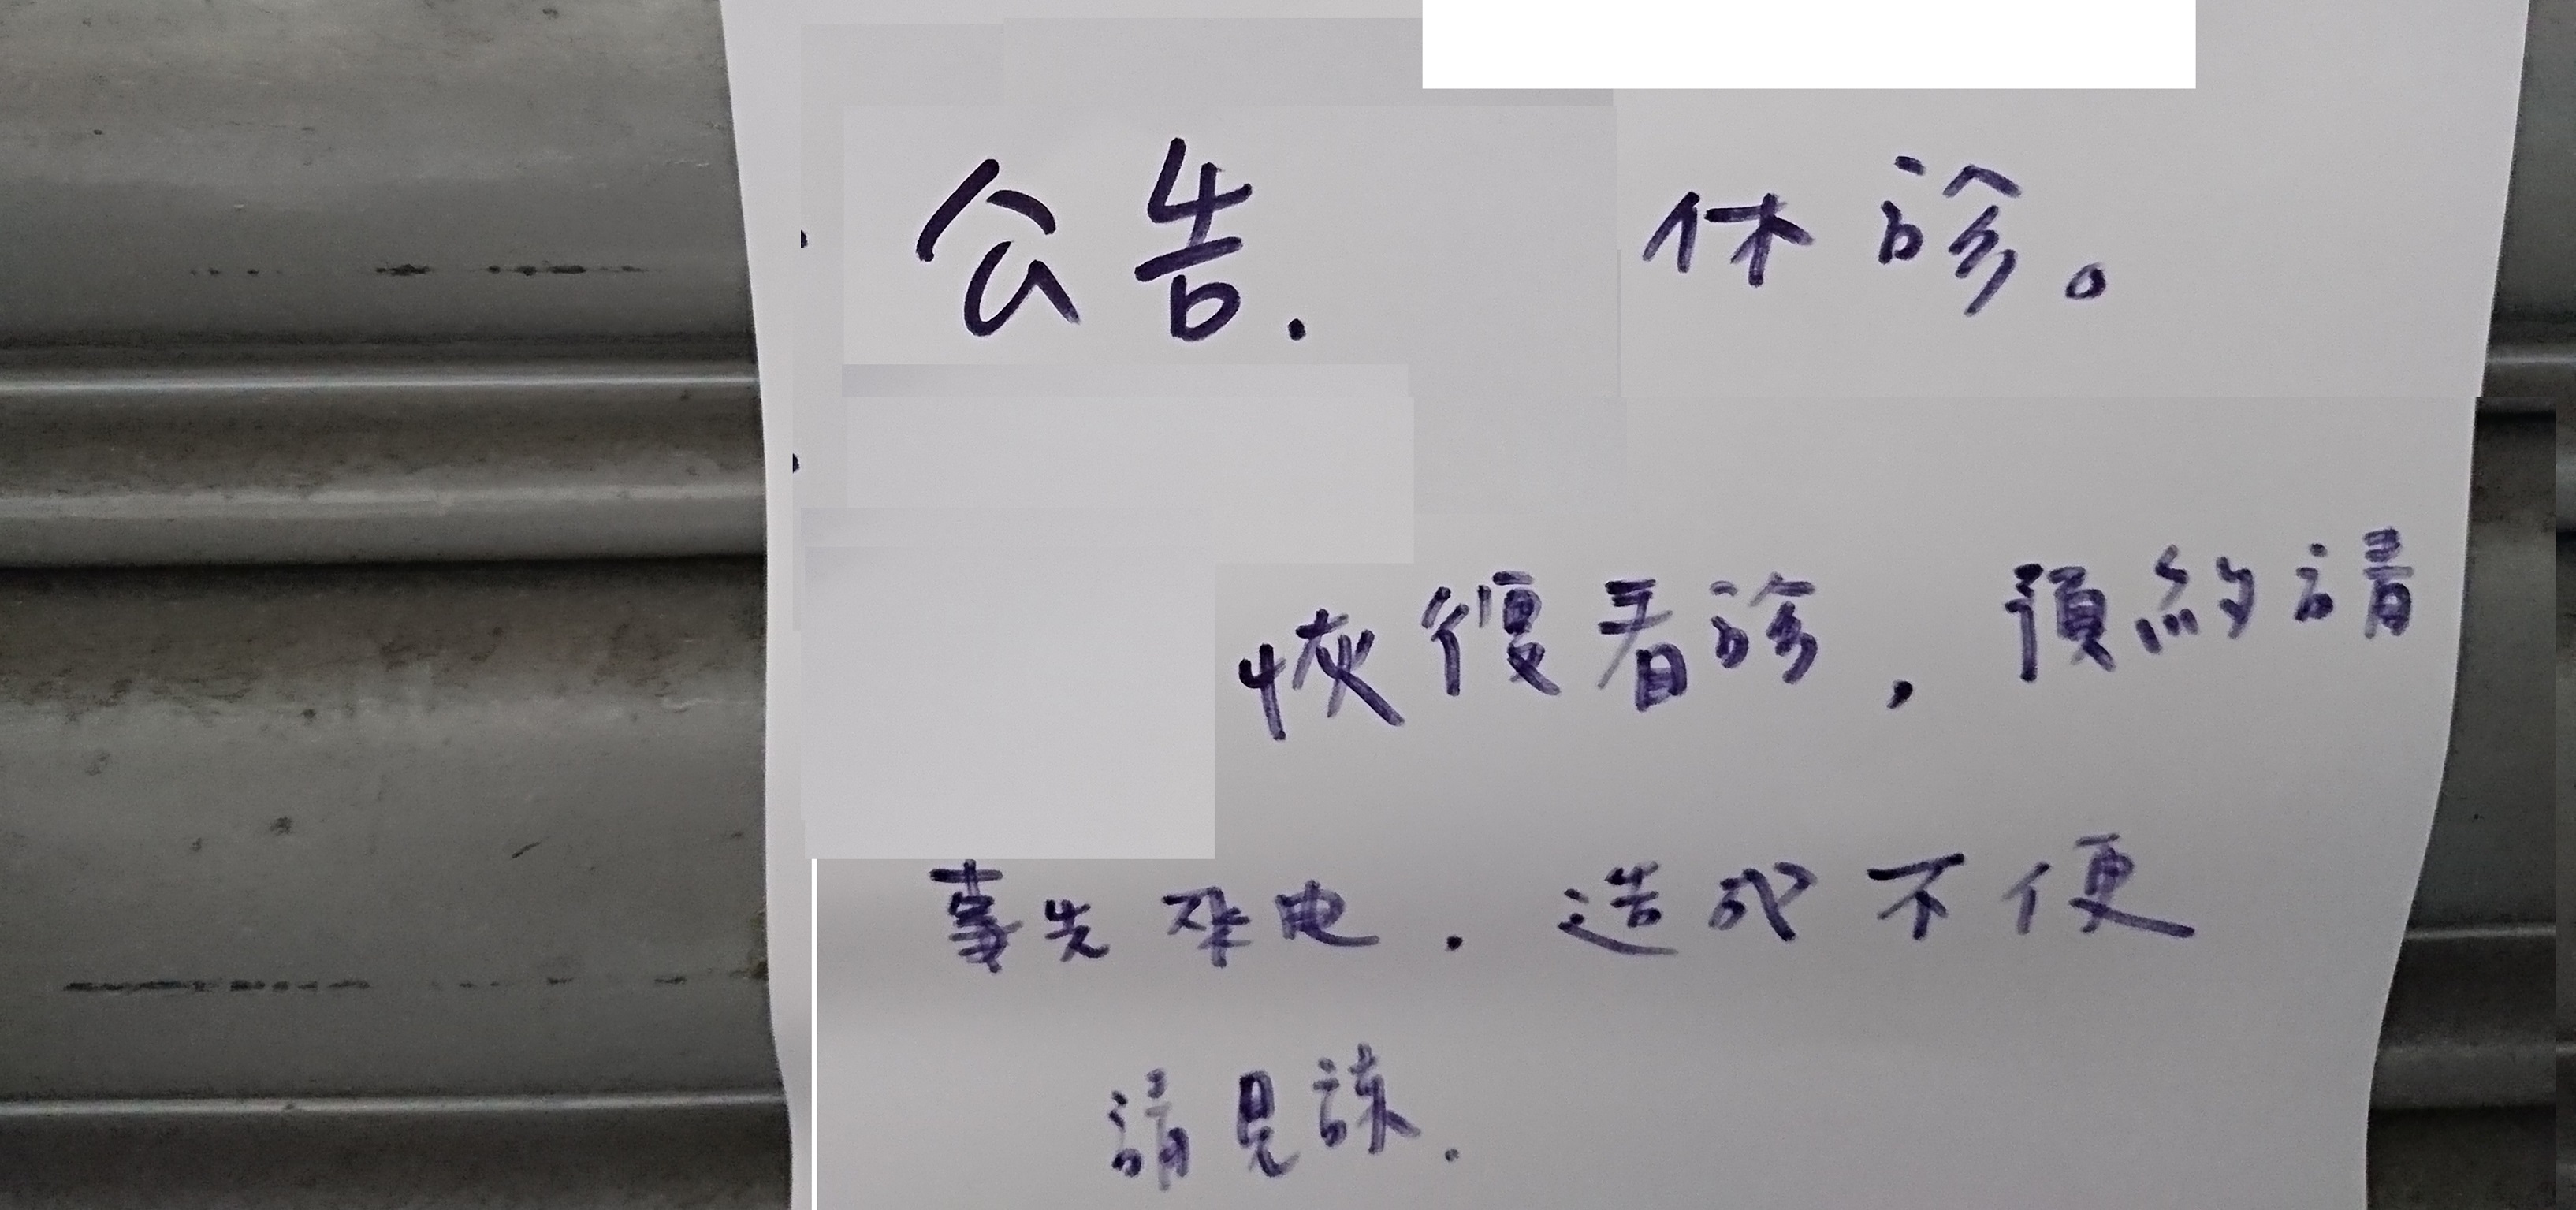 公告. 休診。
恢復看診，預約請
事先來电. 造成不便
請見諒.